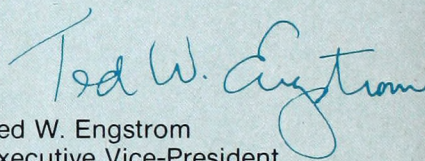 Ted W. Engstrom
ed W. Engstrom
xecutive Vice-President